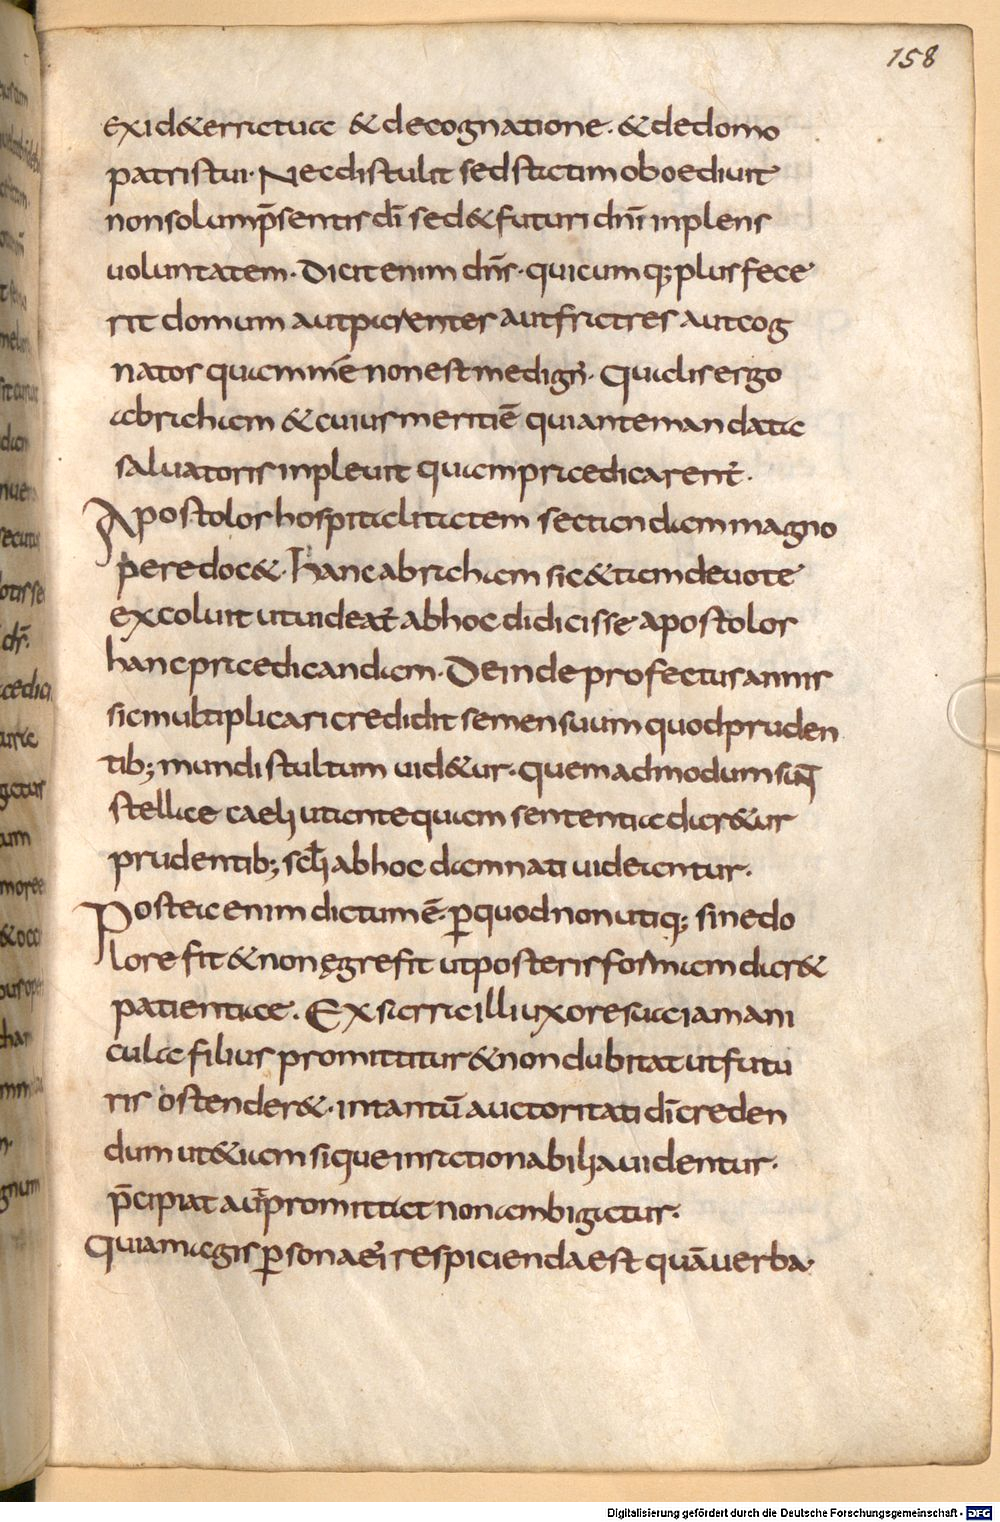 158
exi de terra tua & de cognatione · & de domo
patris tui · Nec distulit sed statim oboediuit
non solum p̄sentis dī sed & futuri dn̄i inplens
uoluntatem · Dicit enim dn̄s · quicumq; plus fece
rit domum aut parentes aut fratres aut cog
natos quam mē non est me dign̄ · Qualis ergo
abraham & cuius meriti ē qui ante mandata
saluatoris inpleuit quam praedicarent ·
Apostolos hospitalitatem sectandam magno
pere doc& · Hanc abraham sic &iam deuote
excoluit ut uideat̄ ab hoc didicisse apostolos
hanc praedicandam · Deinde profectus annis
sic multiplicari credidit semen suum quod pruden
tib; mundi stultum uid&ur · quemadmodum sunt
stellae caeli ut ante quam sententia dar&ur
prudentib; scli ab hoc damnati uideantur ·
Postea enim dictum ē · p quod non utiq; sine do
lore fit & non ęgre fit ut posteris formam dar&
patientiae · Ex sarra illi uxore sua iam ani
cula filius promittitur & non dubitat ut futu
ris ostender& · in tantū auctoritati dī creden
dum ut &iam si quae inrationabilia uidentur ·
p̄cipiat aut promittat non ambigatur ·
Quia magis p sona ei respicienda est quā uerba ·
Digitalisierung gefördert durch die Deutsche Forschungsgemeinschaft - DFG